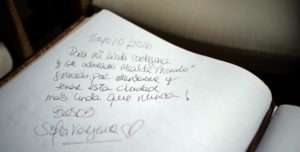 Para mi linda Cartagena
y su adorado Alcalde
gracias por atenderme y
tener esta ciudad
mas linda que Nunca!
Besos
Sofia Vergara